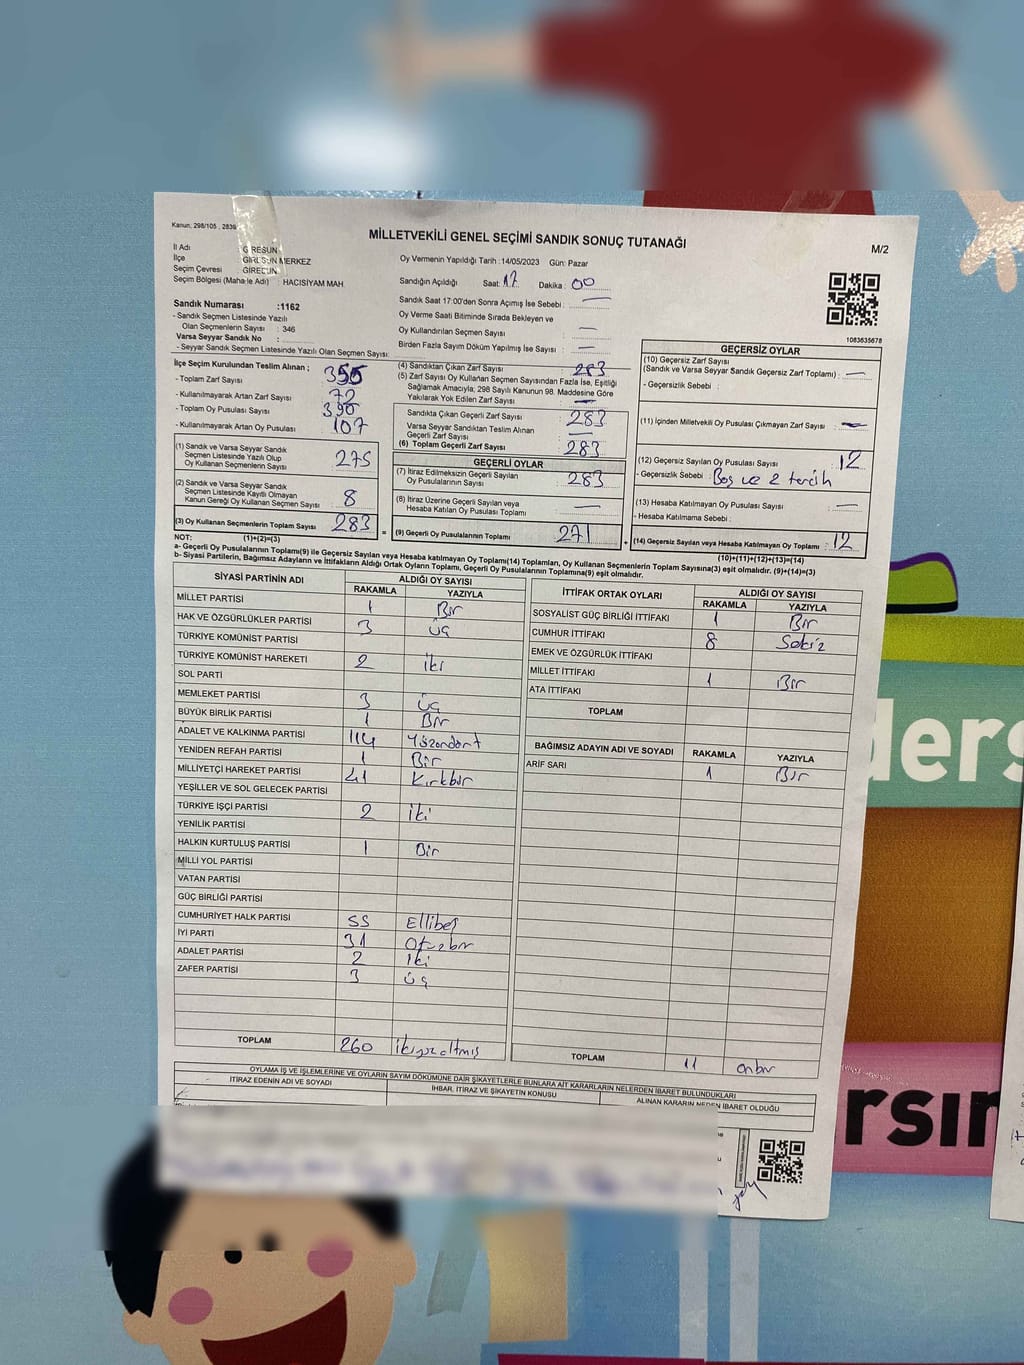 Kanun, 298/105 , 2839
MİLLETVEKİLİ GENEL SEÇİMİ SANDIK SONUÇ TUTANAĞI
M/2
İl Adı : GİRESUN
İlçe : GİRESUN MERKEZ
Seçim Çevresi : GİRESUN
Seçim Bölgesi (Mahalle Adı) : HACISİYAM MAH.
Sandık Numarası :1162
- Sandık Seçmen Listesinde Yazılı
Olan Seçmenlerin Sayısı : 346
Varsa Seyyar Sandık No :
- Seyyar Sandık Seçmen Listesinde Yazılı Olan Seçmen Sayısı:
Oy Vermenin Yapıldığı Tarih :14/05/2023 Gün: Pazar
Sandığın Açıldığı Saat: 17 Dakika : 00
Sandık Saat 17:00'den Sonra Açımış İse Sebebi : —
Oy Verme Saati Bitiminde Sırada Bekleyen ve
Oy Kullandırılan Seçmen Sayısı —
Birden Fazla Sayım Döküm Yapılmış İse Sayısı : —
1083635678
İlçe Seçim Kurulundan Teslim Alınan ;
- Toplam Zarf Sayısı : 355
- Kullanılmayarak Artan Zarf Sayısı : 72
- Toplam Oy Pusulası Sayısı : 390
- Kullanılmayarak Artan Oy Pusulası : 107
(1) Sandık ve Varsa Seyyar Sandık
Seçmen Listesinde Yazılı Olup
Oy Kullanan Seçmenlerin Sayısı 275
(2) Sandık ve Varsa Seyyar Sandık
Seçmen Listesinde Kayıtlı Olmayan
Kanun Gereği Oy Kullanan Seçmen Sayısı 8
(3) Oy Kullanan Seçmenlerin Toplam Sayısı 283
(1)+(2)=(3)
(4) Sandıktan Çıkan Zarf Sayısı : 283
(5) Zarf Sayısı Oy Kullanan Seçmen Sayısından Fazla İse, Eşitliği
Sağlamak Amacıyla, 298 Sayılı Kanunun 98. Maddesine Göre
Yakılarak Yok Edilen Zarf Sayısı : —
Sandıkta Çıkan Geçerli Zarf Sayısı : 283
Varsa Seyyar Sandıktan Teslim Alınan
Geçerli Zarf Sayısı : —
(6) Toplam Geçerli Zarf Sayısı : 283
GEÇERLİ OYLAR
(7) İtiraz Edilmeksizin Geçerli Sayılan
Oy Pusulalarının Sayısı : 283
(8) İtiraz Üzerine Geçerli Sayılan veya
Hesaba Katılan Oy Pusulası Toplamı : —
= (9) Geçerli Oy Pusulalarının Toplamı 271 +
GEÇERSİZ OYLAR
(10) Geçersiz Zarf Sayısı
(Sandık ve Varsa Seyyar Sandık Geçersiz Zarf Toplamı) : —
- Geçersizlik Sebebi :
(11) İçinden Milletvekili Oy Pusulası Çıkmayan Zarf Sayısı : —
(12) Geçersiz Sayılan Oy Pusulası Sayısı : 12
- Geçersizlik Sebebi : Boş ve 2 tercih
(13) Hesaba Katılmayan Oy Pusulası Sayısı : —
- Hesaba Katılmama Sebebi :
(14) Geçersiz Sayılan veya Hesaba Katılmayan Oy Toplamı : 12
(10)+(11)+(12)+(13)=(14)
NOT:
a- Geçerli Oy Pusulalarının Toplamı(9) ile Geçersiz Sayılan veya Hesaba katılmayan Oy Toplamı(14) Toplamları, Oy Kullanan Seçmenlerin Toplam Sayısına(3) eşit olmalıdır. (9)+(14)=(3)
b- Siyasi Partilerin, Bağımsız Adayların ve İttifakların Aldığı Ortak Oyların Toplamı, Geçerli Oy Pusulalarının Toplamına(9) eşit olmalıdır.
SİYASİ PARTİNİN ADI ALDIĞI OY SAYISI
RAKAMLA YAZIYLA
MİLLET PARTİSİ 1 Bir
HAK VE ÖZGÜRLÜKLER PARTİSİ 3 üç
TÜRKİYE KOMÜNİST PARTİSİ
TÜRKİYE KOMÜNİST HAREKETİ 2 iki
SOL PARTİ
MEMLEKET PARTİSİ 3 üç
BÜYÜK BİRLİK PARTİSİ 1 Bir
ADALET VE KALKINMA PARTİSİ 114 Yüzondört
YENİDEN REFAH PARTİSİ 1 Bir
MİLLİYETÇİ HAREKET PARTİSİ 41 Kırkbir
YEŞİLLER VE SOL GELECEK PARTİSİ
TÜRKİYE İŞÇİ PARTİSİ 2 iki
YENİLİK PARTİSİ
HALKIN KURTULUŞ PARTİSİ 1 Bir
MİLLİ YOL PARTİSİ
VATAN PARTİSİ
GÜÇ BİRLİĞİ PARTİSİ
CUMHURİYET HALK PARTİSİ 55 Ellibeş
İYİ PARTİ 31 Otuzbir
ADALET PARTİSİ 2 iki
ZAFER PARTİSİ 3 üç
TOPLAM 260 ikiyüzaltmış
İTTİFAK ORTAK OYLARI ALDIĞI OY SAYISI
RAKAMLA YAZIYLA
SOSYALİST GÜÇ BİRLİĞİ İTTİFAKI 1 Bir
CUMHUR İTTİFAKI 8 Sekiz
EMEK VE ÖZGÜRLÜK İTTİFAKI
MİLLET İTTİFAKI 1 Bir
ATA İTTİFAKI
TOPLAM
BAĞIMSIZ ADAYIN ADI VE SOYADI RAKAMLA YAZIYLA
ARİF SARI 1 Bir
TOPLAM 11 onbir
OYLAMA İŞ VE İŞLEMLERİNE VE OYLARIN SAYIM DÖKÜMÜNE DAİR ŞİKAYETLERLE BUNLARA AİT KARARLARIN NELERDEN İBARET BULUNDUKLARI
İTİRAZ EDENİN ADI VE SOYADI
İHBAR, İTİRAZ VE ŞİKAYETİN KONUSU
ALINAN KARARIN NEDEN İBARET OLDUĞU
ders
rsın